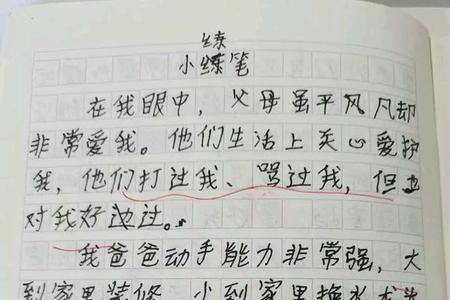 练
小练笔
在我眼中，父母虽平风凡却
非常爱我。他们生活上关心爱护
我，他们打过我、骂过我，但也
对我好过过。
我爸爸动手能力非常强，大
到家里装修，小到家里换水龙头